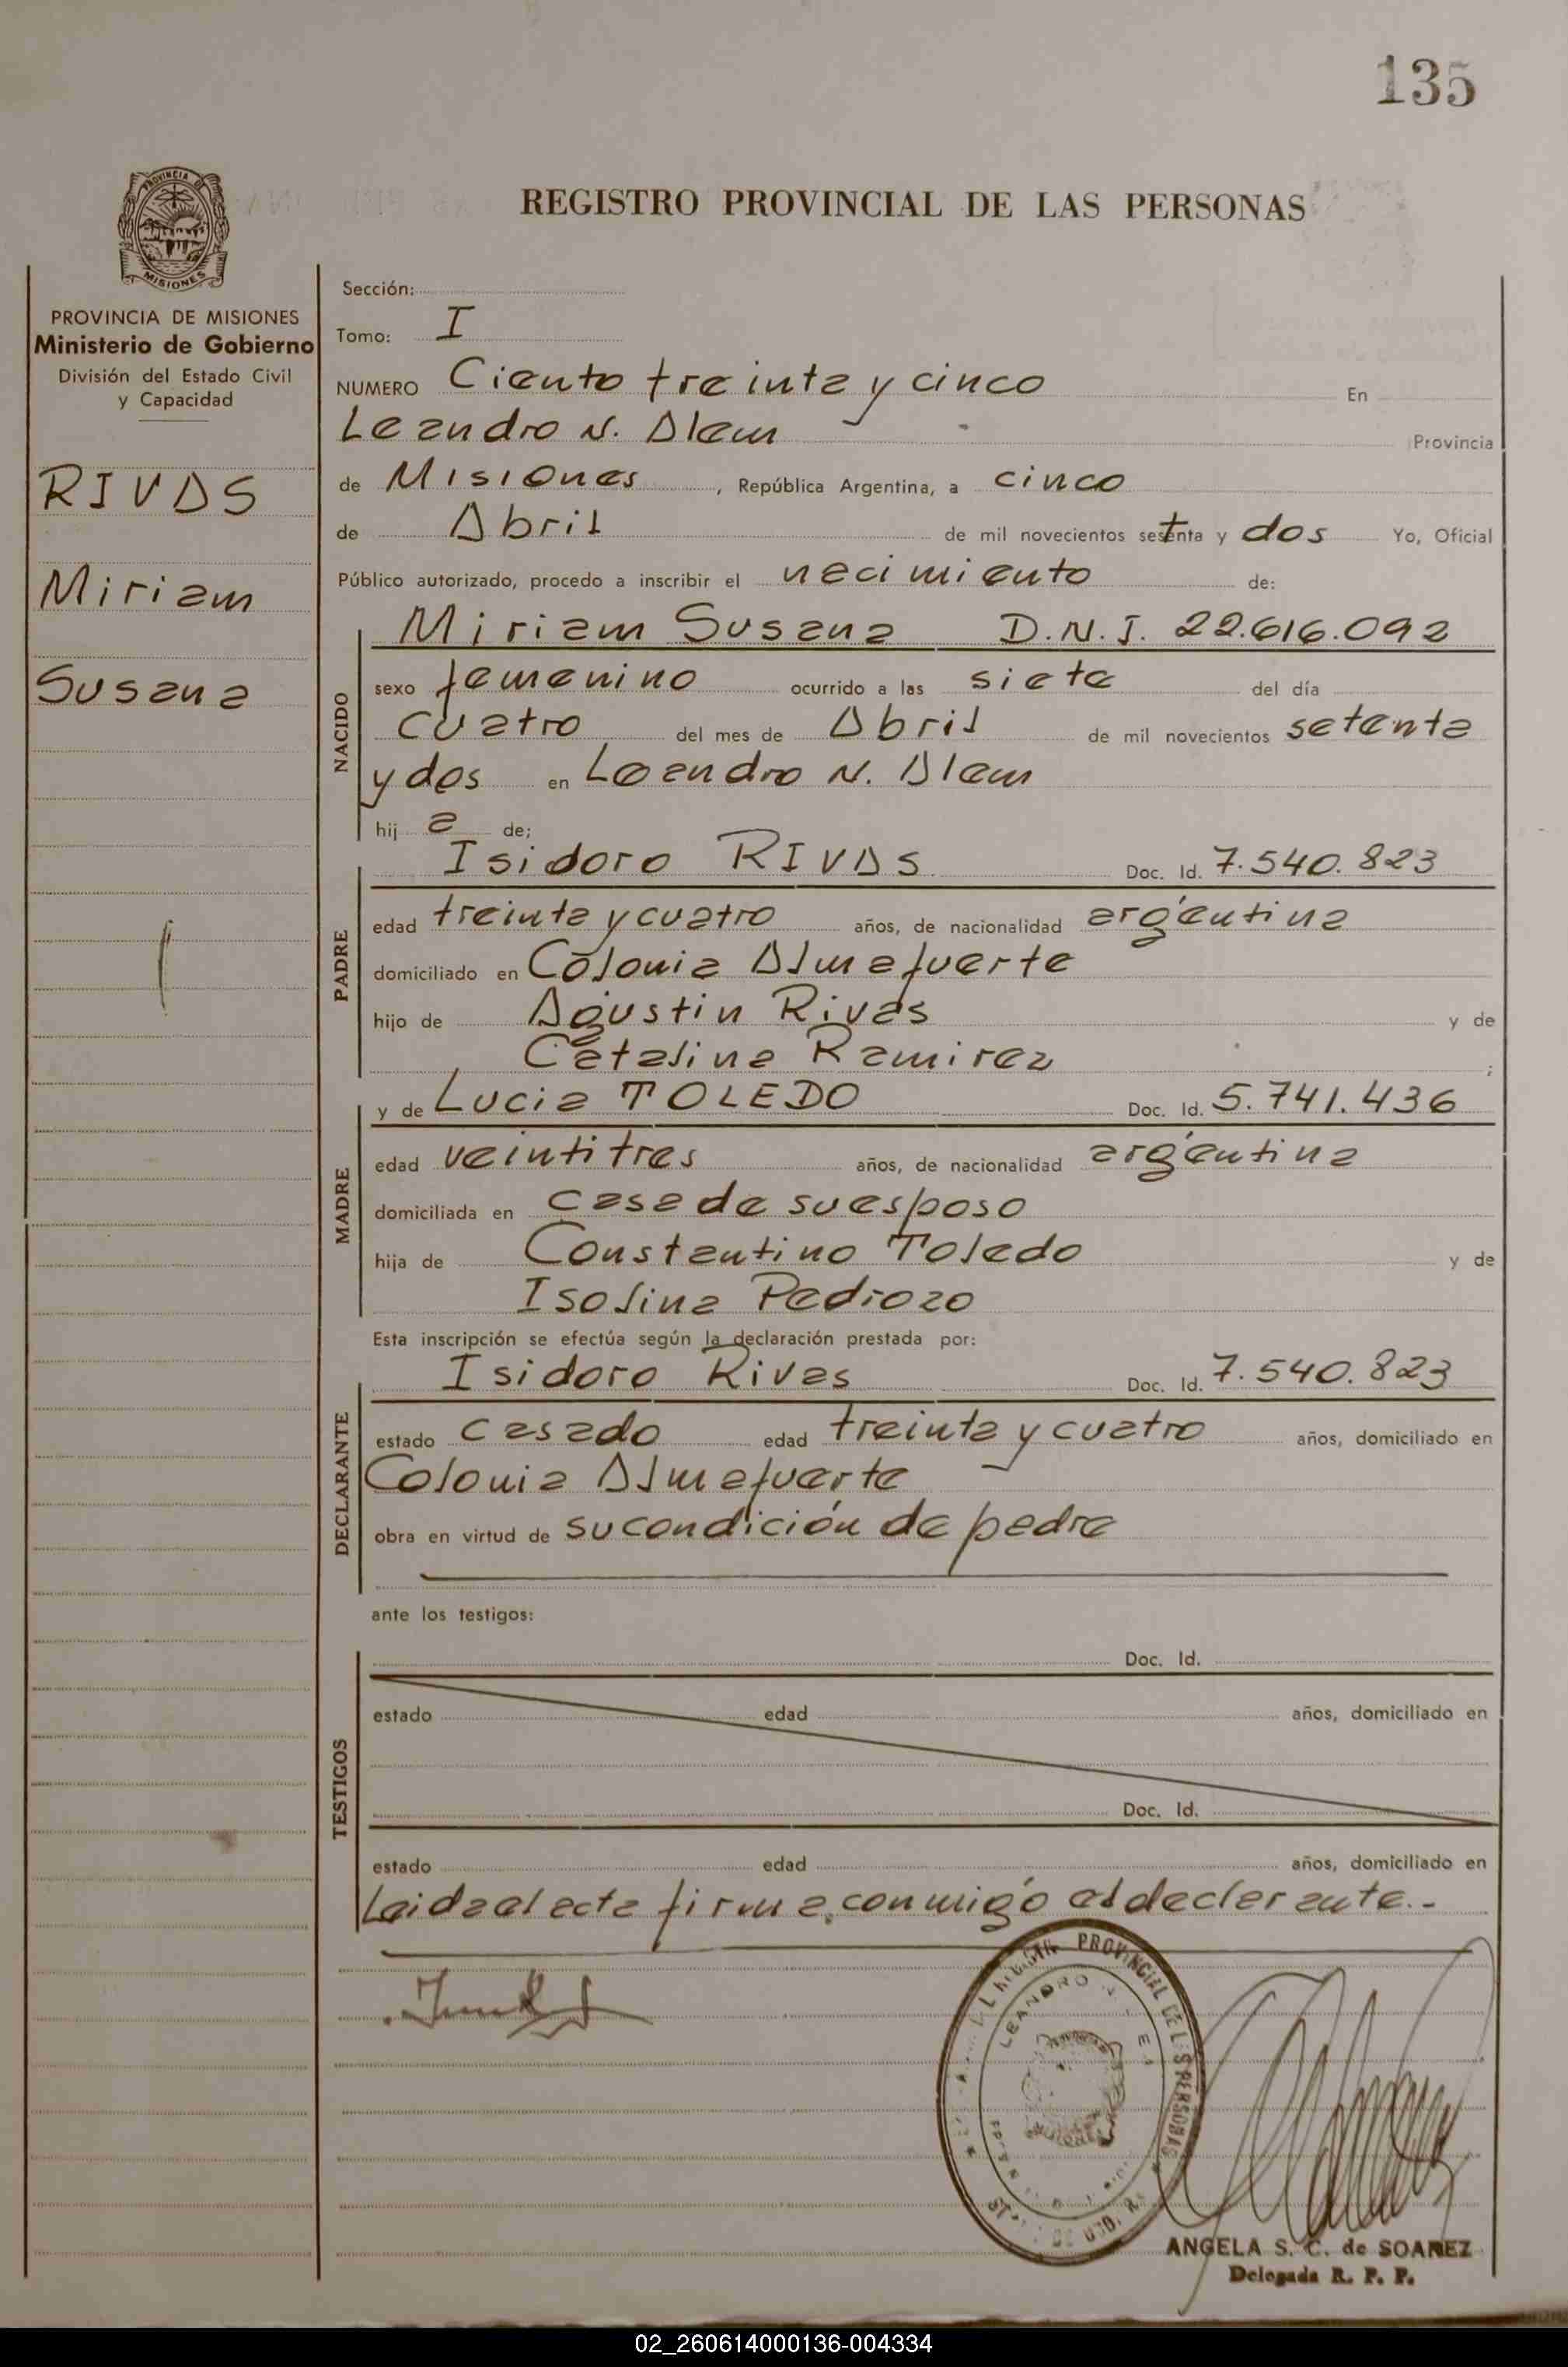 135
PROVINCIA DE
MISIONES
REGISTRO PROVINCIAL DE LAS PERSONAS
PROVINCIA DE MISIONES
Ministerio de Gobierno
División del Estado Civil
y Capacidad
RIVAS
Miriam
Susana
Sección:
Tomo: I
NUMERO Ciento treinta y cinco En
Leandro N. Alem Provincia
de Misiones, República Argentina, a cinco
de Abril de mil novecientos setenta y dos Yo, Oficial
Público autorizado, procedo a inscribir el nacimiento de:
NACIDO
Miriam Susana D.N.I. 22.616.092
sexo femenino ocurrido a las siete del día
cuatro del mes de Abril de mil novecientos setenta
y dos en Leandro N. Alem
hij a de;
PADRE
Isidoro RIVAS Doc. Id. 7.540.823
edad treinta y cuatro años, de nacionalidad argentina
domiciliado en Colonia Almafuerte
hijo de Agustin Rivas y de
Catalina Ramirez ;
MADRE
y de Lucia TOLEDO Doc. Id. 5.741.436
edad veintitres años, de nacionalidad argentina
domiciliada en casa de su esposo
hija de Constantino Toledo y de
Isolina Pedrozo
Esta inscripción se efectúa según la declaración prestada por:
DECLARANTE
Isidoro Rivas Doc. Id. 7.540.823
estado casado edad treinta y cuatro años, domiciliado en
Colonia Almafuerte
obra en virtud de su condición de padre
ante los testigos:
TESTIGOS
Doc. Id.
estado edad años, domiciliado en
Doc. Id.
estado edad años, domiciliado en
Leida el acta firma conmigo el declarante.-
PROVINCIAL DE LAS PERSONAS
LEANDRO N.
ANGELA S. C. de SOAREZ
Delegada R. P. P.
02_260614000136-004334